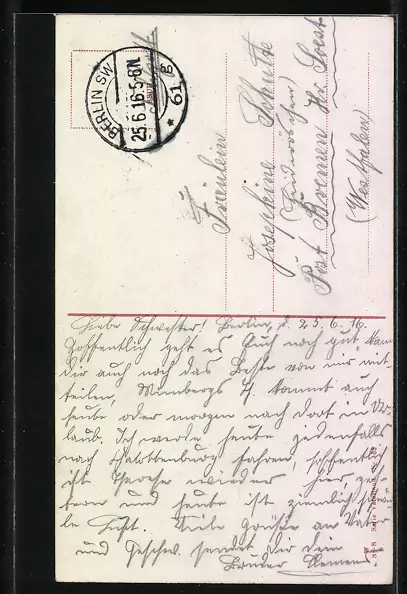 BERLIN SW
25.6.16.5-6N.
* 61 B
Fräulein
Josephine Schütte
Post Bremen Kr. Soest
(Westfalen)
Liebe Schwester! Berlin, d. 25.6.16.
Hoffentlich geht es Euch noch gut, kann
dir auch noch das Beste von mir mit-
teilen, kommt auch
heute oder morgen nach dort in Ur-
laub. Ich werde heute jedenfalls
nach fahren, hoffentlich
ist wieder hier,
und heute ist ziemlich
Luft. Viele Grüße an Vater
und Geschw. sendet dir dein
Bruder Clemens.